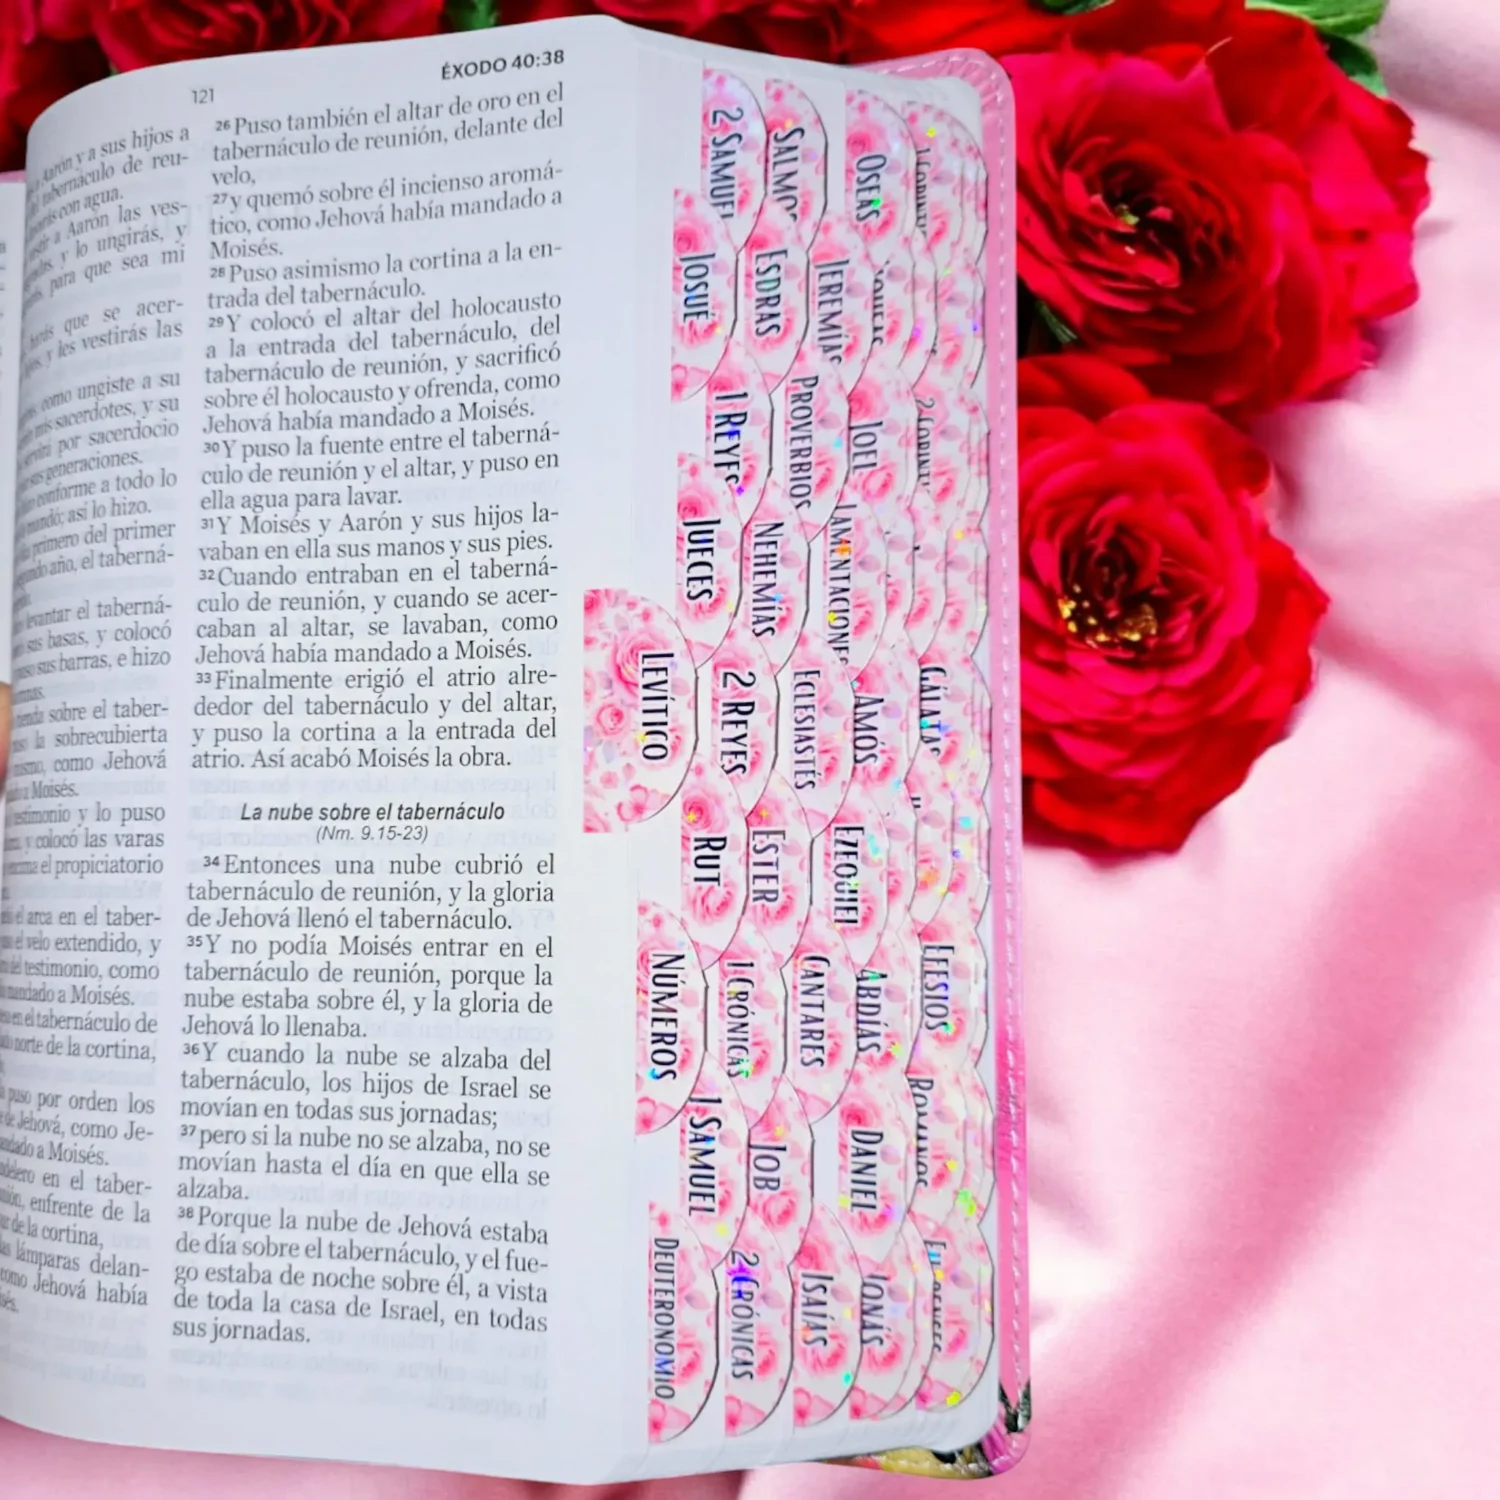 121
ÉXODO 40:38
Aarón y a sus hijos a
tabernáculo de reu-
con agua.
a Aarón las ves-
y lo ungirás, y
para que sea mi
que se acer-
y les vestirás las
como ungiste a su
mis sacerdotes, y su
por sacerdocio
sus generaciones.
conforme a todo lo
mandó; así lo hizo.
primero del primer
año, el taberná-
levantar el taberná-
sus basas, y colocó
puso sus barras, e hizo
sobre el taber-
la sobrecubierta
mismo, como Jehová
a Moisés.
testimonio y lo puso
y colocó las varas
encima el propiciatorio
el arca en el taber-
el velo extendido, y
del testimonio, como
mandado a Moisés.
en el tabernáculo de
norte de la cortina,
puso por orden los
de Jehová, como Je-
mandado a Moisés.
en el taber-
enfrente de la
de la cortina,
las lámparas delan-
como Jehová había
26 Puso también el altar de oro en el
tabernáculo de reunión, delante del
velo,
27 y quemó sobre él incienso aromá-
tico, como Jehová había mandado a
Moisés.
28 Puso asimismo la cortina a la en-
trada del tabernáculo.
29 Y colocó el altar del holocausto
a la entrada del tabernáculo, del
tabernáculo de reunión, y sacrificó
sobre él holocausto y ofrenda, como
Jehová había mandado a Moisés.
30 Y puso la fuente entre el taberná-
culo de reunión y el altar, y puso en
ella agua para lavar.
31 Y Moisés y Aarón y sus hijos la-
vaban en ella sus manos y sus pies.
32 Cuando entraban en el taberná-
culo de reunión, y cuando se acer-
caban al altar, se lavaban, como
Jehová había mandado a Moisés.
33 Finalmente erigió el atrio alre-
dedor del tabernáculo y del altar,
y puso la cortina a la entrada del
atrio. Así acabó Moisés la obra.
La nube sobre el tabernáculo
(Nm. 9.15-23)
34 Entonces una nube cubrió el
tabernáculo de reunión, y la gloria
de Jehová llenó el tabernáculo.
35 Y no podía Moisés entrar en el
tabernáculo de reunión, porque la
nube estaba sobre él, y la gloria de
Jehová lo llenaba.
36 Y cuando la nube se alzaba del
tabernáculo, los hijos de Israel se
movían en todas sus jornadas;
37 pero si la nube no se alzaba, no se
movían hasta el día en que ella se
alzaba.
38 Porque la nube de Jehová estaba
de día sobre el tabernáculo, y el fue-
go estaba de noche sobre él, a vista
de toda la casa de Israel, en todas
sus jornadas.
LEVÍTICO
NÚMEROS
DEUTERONOMIO
JOSUÉ
JUECES
RUT
1 SAMUEL
2 SAMUEL
1 REYES
2 REYES
1 CRÓNICAS
2 CRÓNICAS
ESDRAS
NEHEMÍAS
ESTER
JOB
SALMOS
PROVERBIOS
ECLESIASTÉS
CANTARES
ISAÍAS
JEREMÍAS
LAMENTACIONES
EZEQUIEL
DANIEL
OSEAS
JOEL
AMÓS
ABDÍAS
JONÁS
ROMANOS
GÁLATAS
EFESIOS